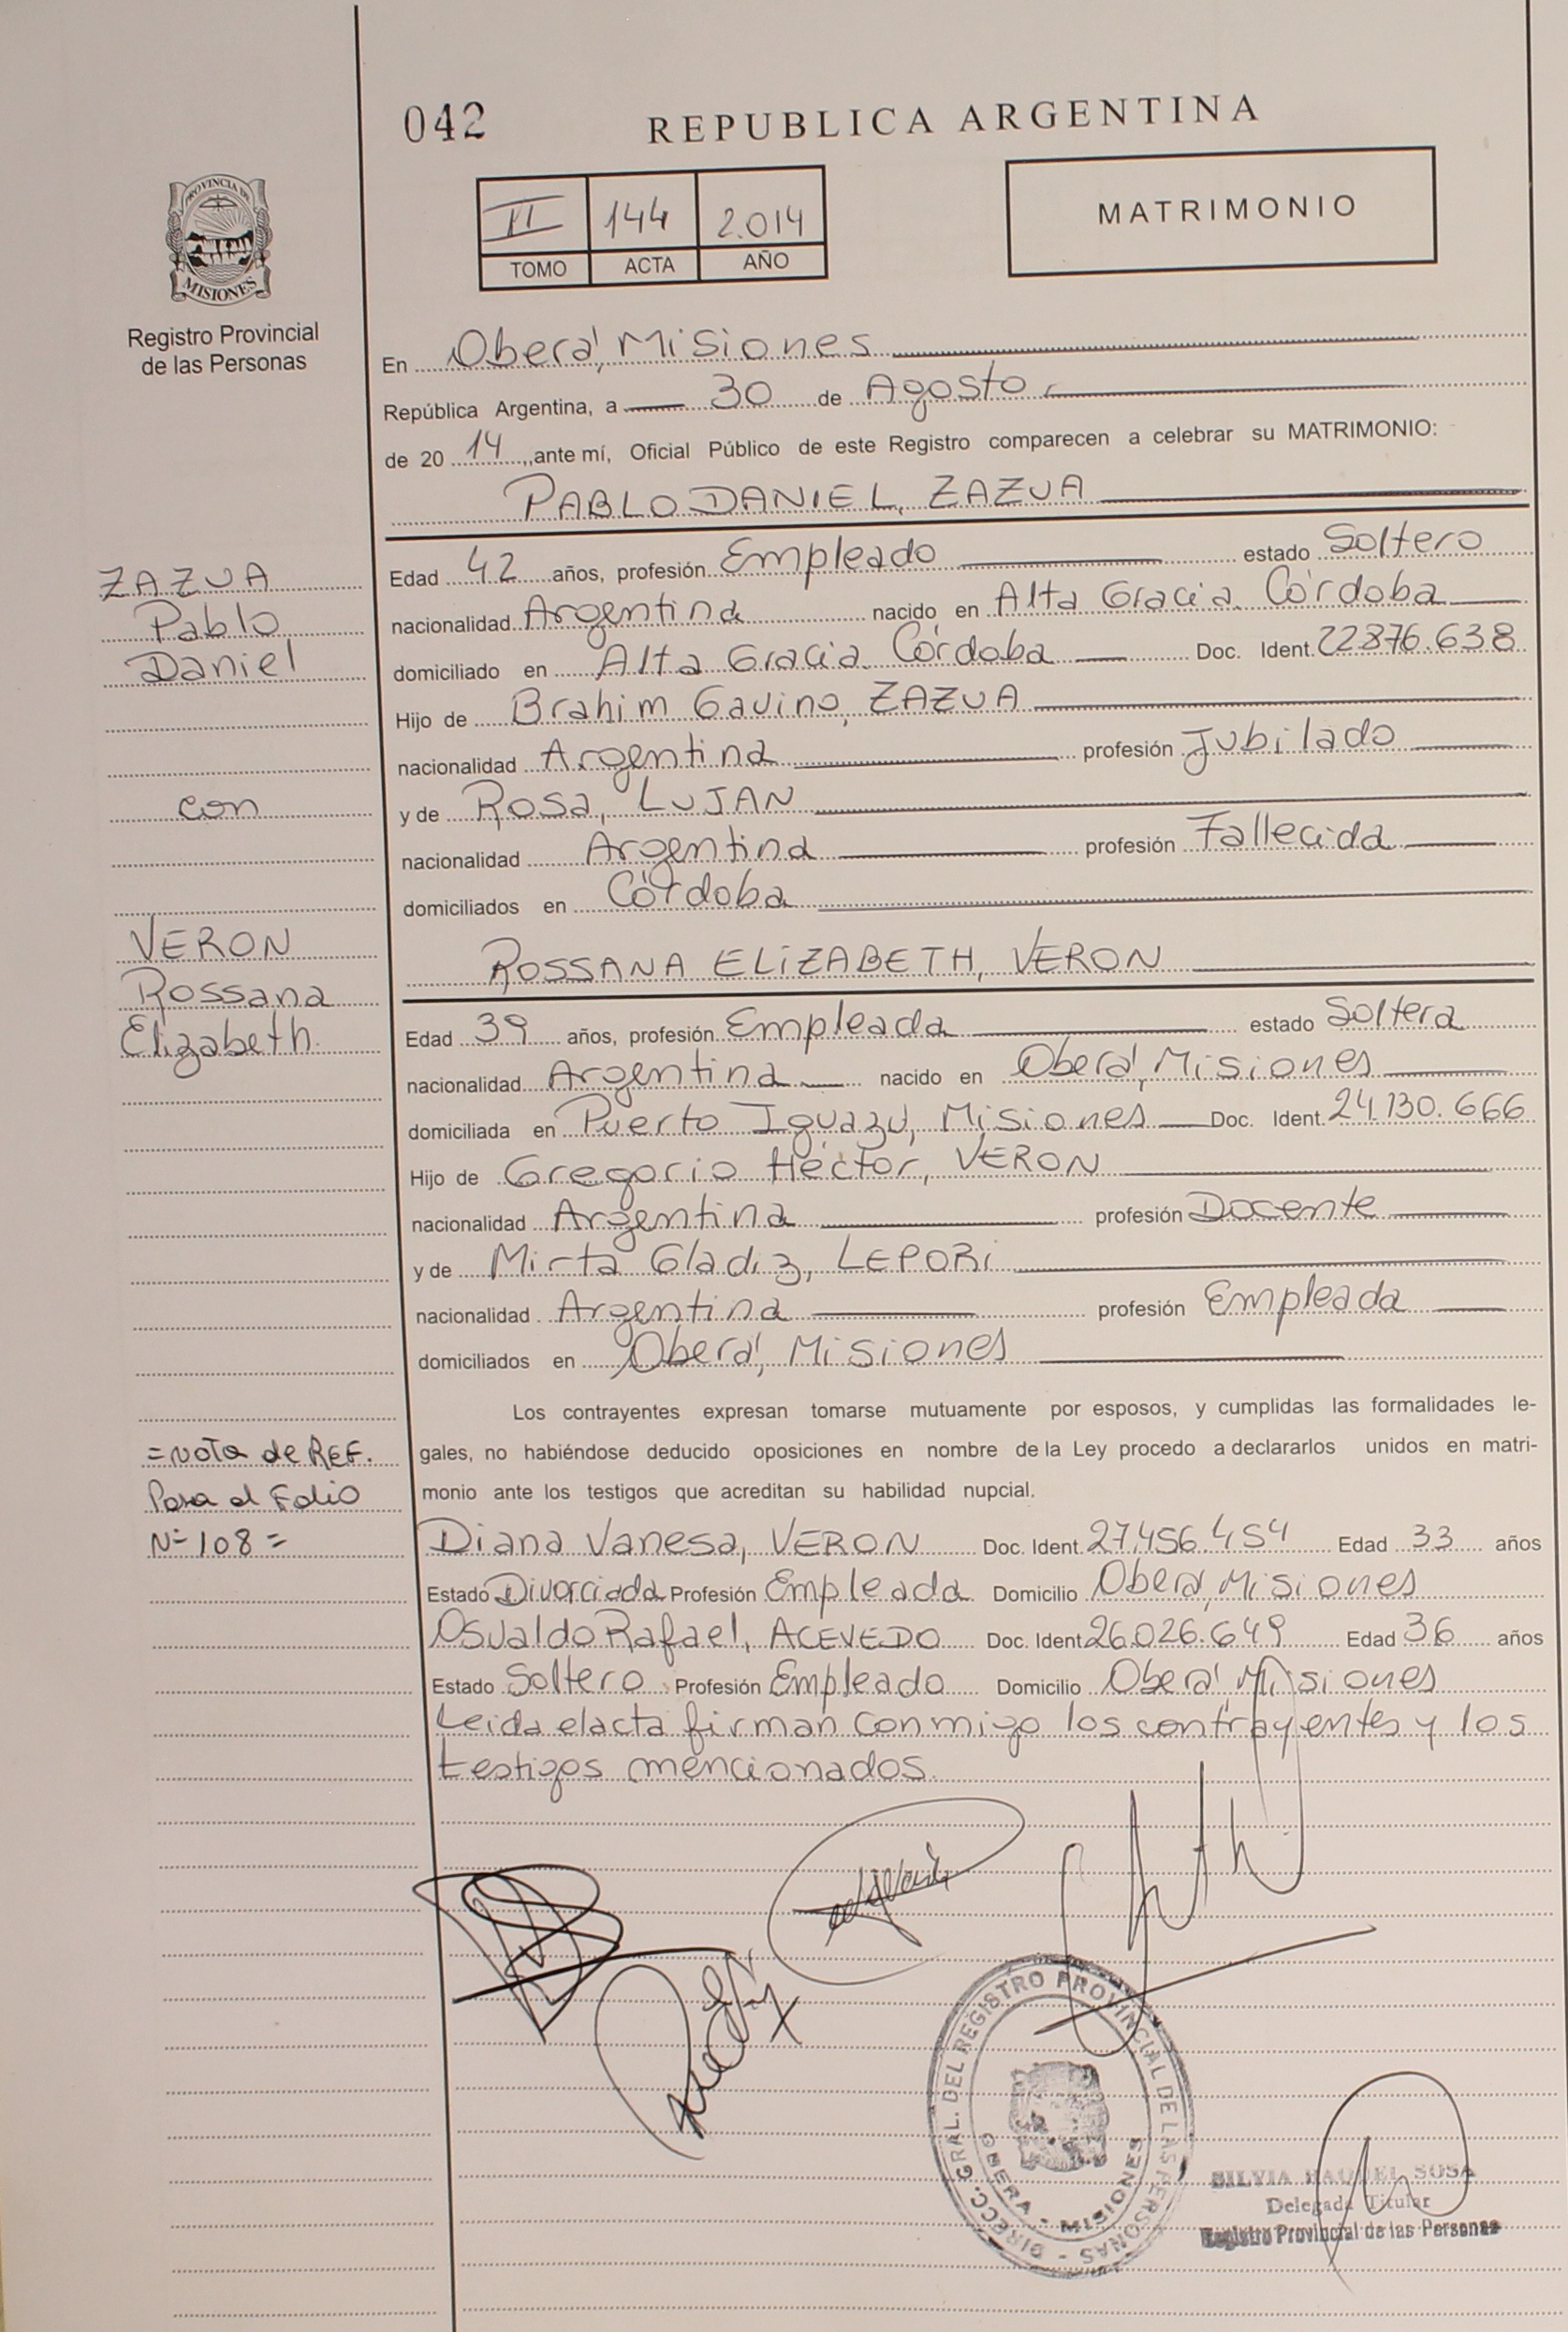 042
REPUBLICA ARGENTINA
II 144 2.014
TOMO ACTA AÑO
MATRIMONIO
PROVINCIA DE
MISIONES
Registro Provincial
de las Personas
En Oberá, Misiones
República Argentina, a 30 de Agosto,
de 20 14, ante mí, Oficial Público de este Registro comparecen a celebrar su MATRIMONIO:
PABLO DANIEL, ZAZUA
ZAZUA
Pablo
Daniel
con
VERON
Rossana
Elizabeth.
Edad 42 años, profesión Empleado estado Soltero
nacionalidad Argentina nacido en Alta Gracia, Córdoba
domiciliado en Alta Gracia, Córdoba Doc. Ident. 22.876.638
Hijo de Brahim Gavino, ZAZUA
nacionalidad Argentina profesión Jubilado
y de Rosa, LUJAN
nacionalidad Argentina profesión Fallecida
domiciliados en Córdoba
ROSSANA ELIZABETH, VERON
Edad 39 años, profesión Empleada estado Soltera
nacionalidad Argentina nacido en Oberá, Misiones
domiciliada en Puerto Iguazú, Misiones Doc. Ident. 24.130.666
Hijo de Gregorio Héctor, VERON
nacionalidad Argentina profesión Docente
y de Mirta Gladiz, LEPORI
nacionalidad Argentina profesión Empleada
domiciliados en Oberá, Misiones
Los contrayentes expresan tomarse mutuamente por esposos, y cumplidas las formalidades le-
gales, no habiéndose deducido oposiciones en nombre de la Ley procedo a declararlos unidos en matri-
monio ante los testigos que acreditan su habilidad nupcial.
=Nota de REF.
Pasa al Folio
Nº 108=
Diana Vanesa, VERON Doc. Ident. 27.456.454 Edad 33 años
Estado Divorciada Profesión Empleada Domicilio Oberá, Misiones
Osvaldo Rafael, ACEVEDO Doc. Ident 26.026.649 Edad 36 años
Estado Soltero Profesión Empleado Domicilio Oberá, Misiones
Leida el acta firman conmigo los contrayentes y los
testigos mencionados.
DIRECC. GRAL. DEL REGISTRO PROVINCIAL DE LAS PERSONAS
OBERA - MISIONES
SILVIA RAQUEL SOSA
Delegada Titular
Registro Provincial de las Personas